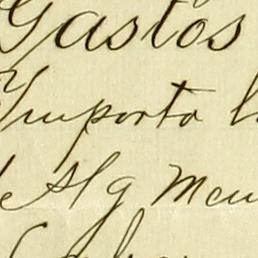 Gastos
Importa l
de Alg Men